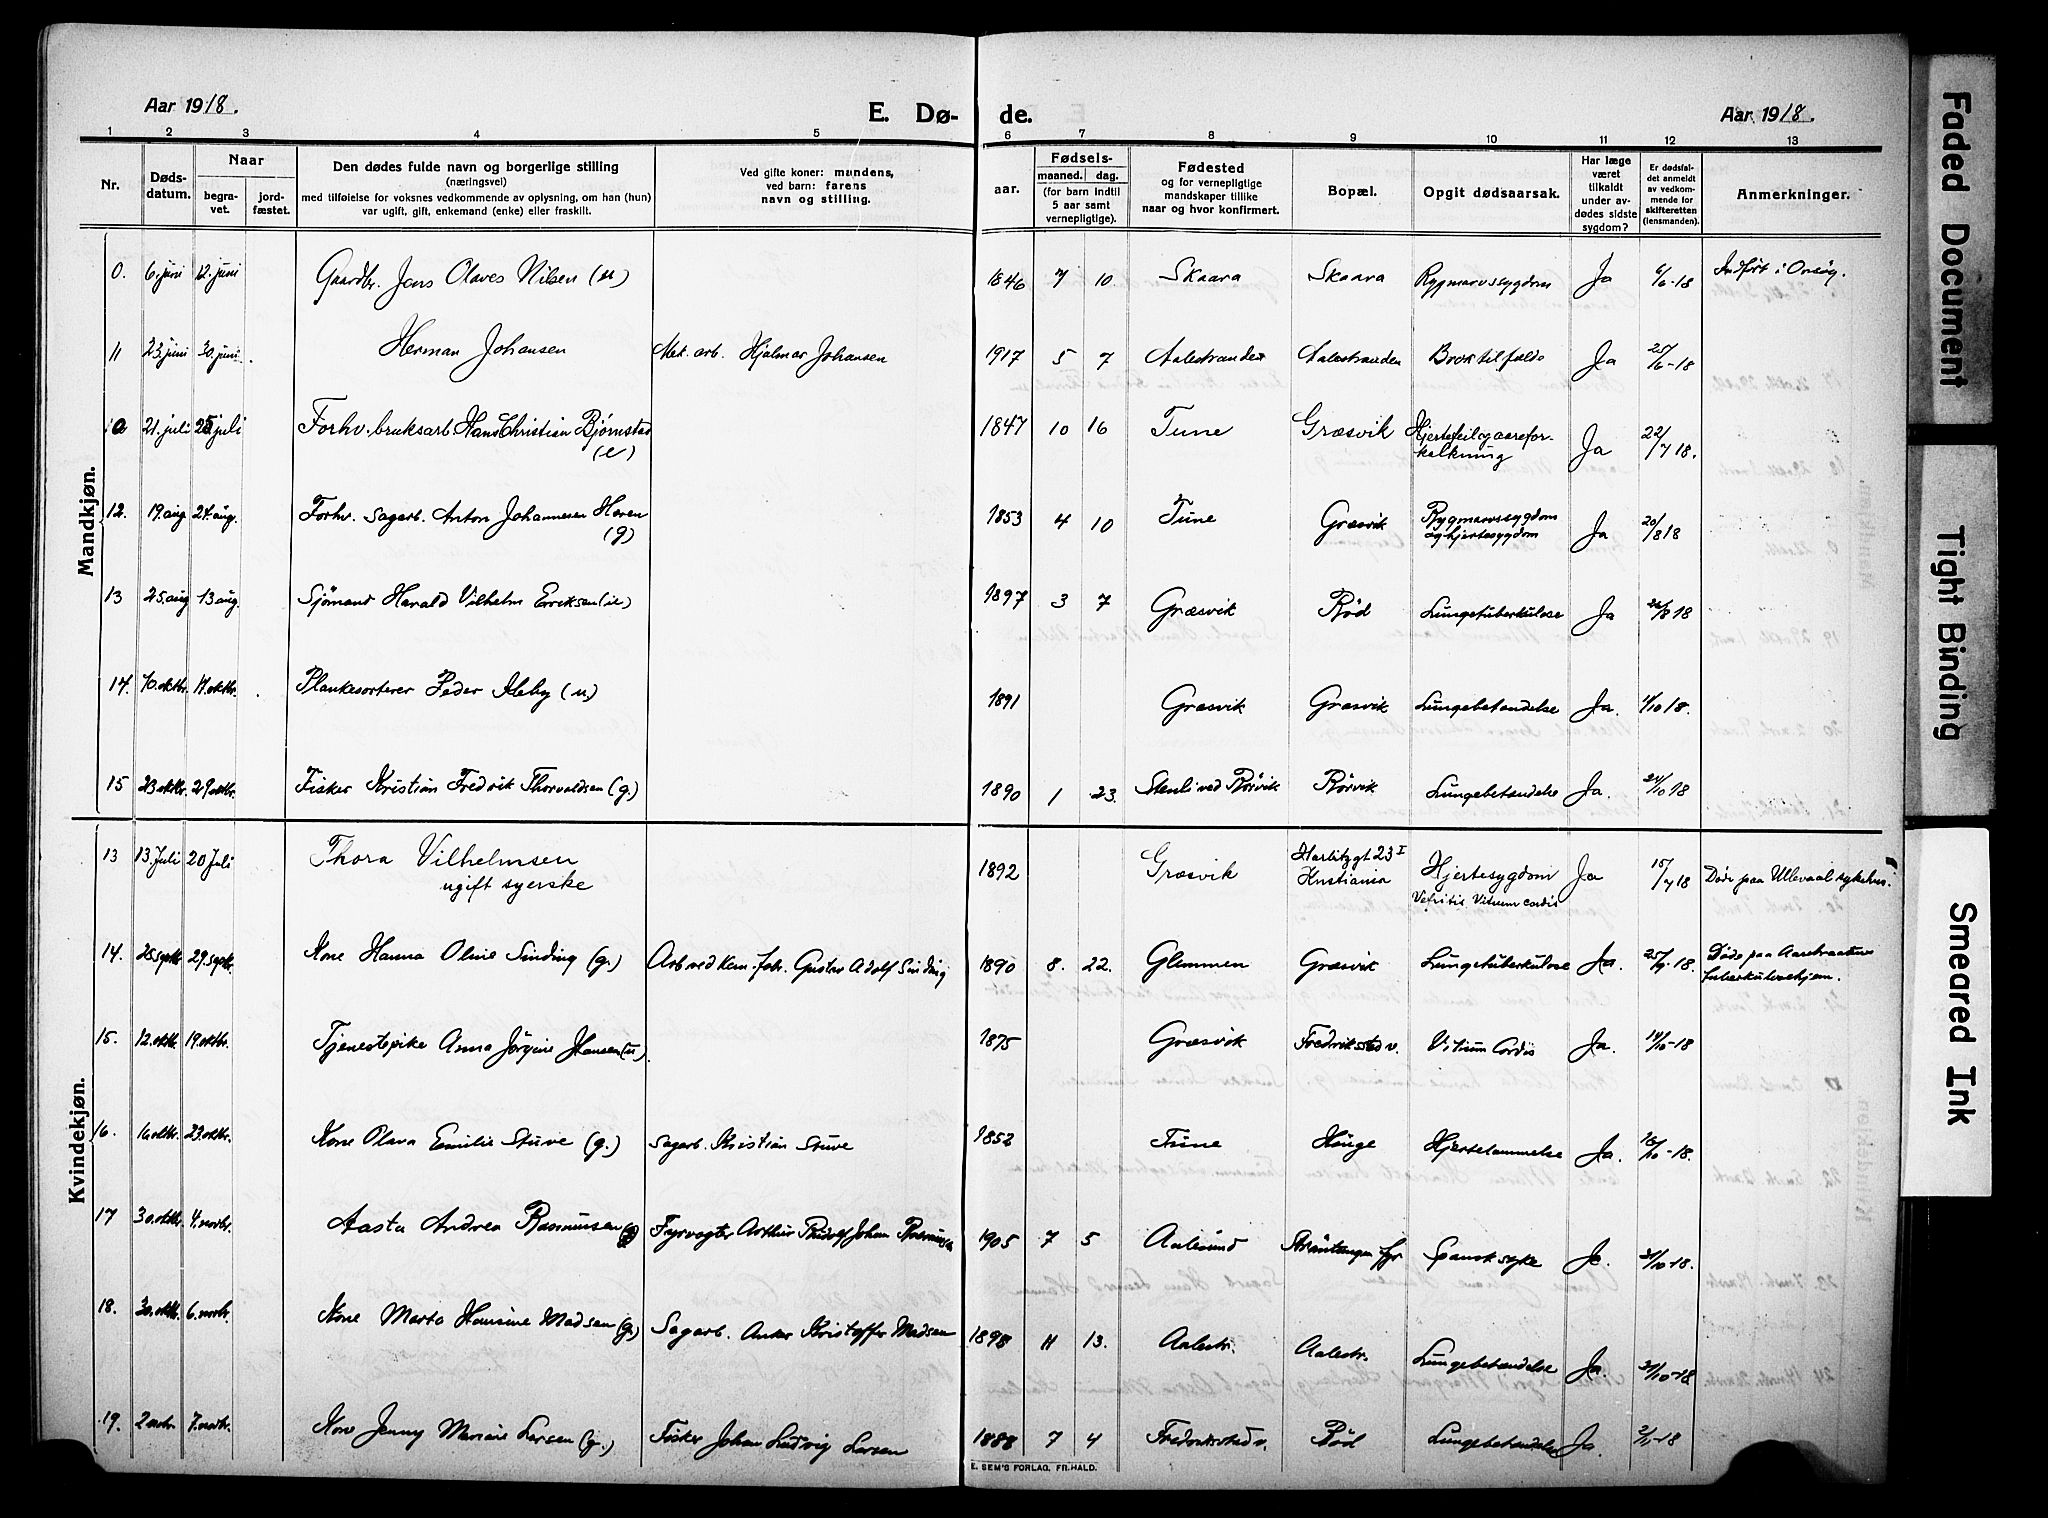 Aar 1918.
E. Dø- de.
Aar 1918.
1 2 3 4 5 6 7 8 9 10 11 12 13
Nr.
Døds-
datum.
Naar
begra-
vet.
jord-
fæstet.
Den dødes fulde navn og borgerlige stilling
(næringsvei)
med tilføielse for voksnes vedkommende av oplysning, om han (hun)
var ugift, gift, enkemand (enke) eller fraskilt.
Ved gifte koner: mandens,
ved barn: farens
navn og stilling.
Fødsels-
aar.
maaned. dag.
(for barn indtil
5 aar samt
vernepligtige).
Fødested
og for vernepligtige
mandskaper tillike
naar og hvor konfirmert.
Bopæl.
Opgit dødsaarsak.
Har læge
været
tilkaldt
under av-
dødes sidste
sygdom?
Er dødsfal-
det anmeldt
av vedkom-
mende for
skifteretten
(lensmanden).
Anmerkninger.
Mandkjøn.
0. 6. juni 12. juni Gaardbr. Jens Olaves Nilsen 1846 7 10 Skaara Skaara Rygmarvssygdom Ja 6/6-18 Indført i Onsøy.
11 23. juni 30. juni Herman Johansen Mek. arb. Hjalmar Johansen 1917 5 7 Aalestranden Aalestranden Broktilfælde Ja 25/6-18
21. juli juli Forhv. bruksarb. Hans Christian Bjørnstad (e) 1847 10 16 Tune Græsvik Hjertefeil og aarefor-
kalkning Ja 22/7 18.
12. 19. aug 24. aug. Forhv. sagarb. Anton Johannesen Haren (g) 1853 4 10 Tune Græsvik Rygmarvssygdom
og hjertesygdom Ja 20/8 18
13 25. aug 13 aug. Sjømand Harald Vilhelm Eriksen (u) 1897 3 7 Græsvik Rød Lungetuberkulose Ja 26/8 18
14. 10. oktbr. 17. oktbr. Plankesorterer Peder (u.) 1891 Græsvik Græsvik Lungebetændelse Ja. 11/10 18.
15 23. oktbr. 29 oktbr. Fisker Kristian Fredrik Thorvaldsen (g.) 1890 1 23. Stenli ved Rørvik Rørvik Lungebetændelse Ja. 24/10 18
Kvindekjøn.
13 13. Juli 20 Juli Thora Vilhelmsen
ugift syerske 1892 Græsvik Harlitzgt 23 I
Kristiania Hjertesygdom
Nefritis. Vitium cordis Ja 15/7 18 Døde paa Ullevaal sykehus.
14. 25. septbr. 29. septbr. Kone Hanna Oline Sinding (g.) Arb. ved kem. fabr. Gustav Adolf Sinding 1890 8. 22. Glemmen Græsvik Lungetuberkulose Ja. 25/9-18. Døde paa
tuberkulosehjem.
15. 12. oktbr. 19. oktbr. Tjenestepike Anna Jørgine Hansen (u). 1875 Græsvik Fredrikstad v. Vitium Cordis Ja. 14/10-18
16. 16. oktbr. 23. oktbr. Kone Olava Emilie Stuve (g.) Sagarb. Kristian Stuve 1852 Tune Hauge Hjertelammelse Ja. 18/10-18.
17 30. oktbr. 4. novbr. Aasta Andrea Rasmussen Fyrvogter Arthur Rudolf Johan Rasmussen 1905 7 5 Aalesund Strømtangen fyr Spansksyke Ja. 31/10-18.
18. 30. oktbr. 6. novbr. Kone Marta Hansine Madsen (g.) Sagarb. Anker Kristoffer Madsen 1898 11 13. Aalestr. Aalestr. Lungebetændelse Ja. 31/10-18
19. 2 novbr. 7. novbr. Kone Jenny Marie Larsen (g.) Fisker Johan Ludvig Larsen 1888 7 4 Fredrikstad v. Rød Lungebetændelse Ja. 2/11-18
E. SEM'S FORLAG, FR.HALD.
Faded Document
Tight Binding
Smeared Ink